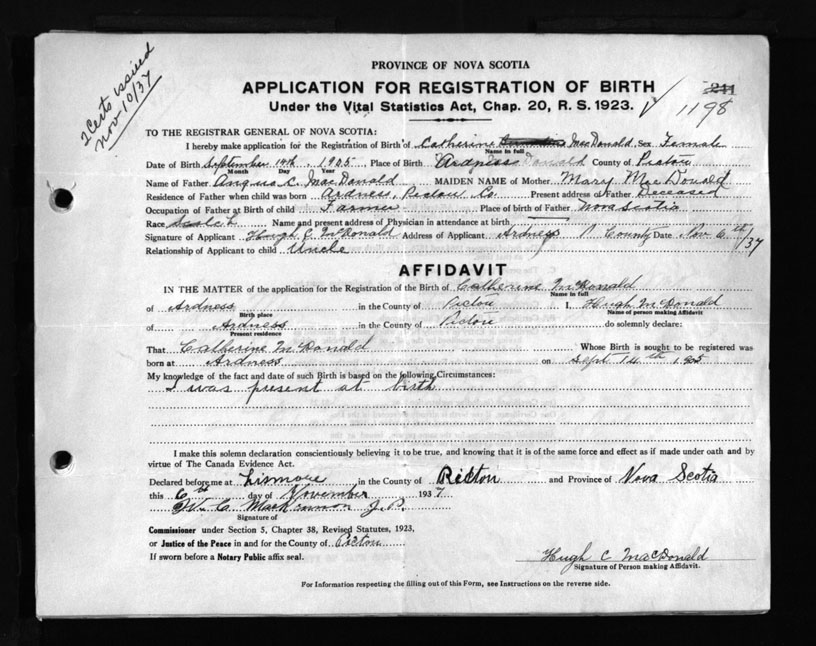 2 Certs issued
Nov 10/37
PROVINCE OF NOVA SCOTIA
APPLICATION FOR REGISTRATION OF BIRTH
Under the Vital Statistics Act, Chap. 20, R. S. 1923.
244
1198
TO THE REGISTRAR GENERAL OF NOVA SCOTIA:
I hereby make application for the Registration of Birth of Catherine MacDonald Sex Female
Name in full
Date of Birth September 14th 1905 Place of Birth Ardness Donald County of Pictou
Month Day Year
Name of Father Angus C. MacDonald MAIDEN NAME of Mother Mary MacDonald
Residence of Father when child was born Ardness, Pictou Co. Present address of Father Deceased
Occupation of Father at Birth of child Farmer Place of birth of Father Nova Scotia
Race Scotch Name and present address of Physician in attendance at birth
Signature of Applicant Hugh C McDonald Address of Applicant Ardness P. County Date Nov 6th/37
Relationship of Applicant to child Uncle
AFFIDAVIT
IN THE MATTER of the application for the Registration of the Birth of Catherine McDonald
Name in full
of Ardness in the County of Pictou I, Hugh McDonald
Birth place Name of person making Affidavit
of Ardness in the County of Pictou do solemnly declare:
Present residence
That Catherine McDonald Whose Birth is sought to be registered was
born at Ardness on Sept 14th 1905
My knowledge of the fact and date of such Birth is based on the following Circumstances:
I was present at birth
I make this solemn declaration conscientiously believing it to be true, and knowing that it is of the same force and effect as if made under oath and by
virtue of The Canada Evidence Act.
Declared before me at Lismore in the County of Pictou and Province of Nova Scotia
this 6th day of November 1937
W. C. MacKinnon J.P.
Signature of
Commissioner under Section 5, Chapter 38, Revised Statutes, 1923,
or Justice of the Peace in and for the County of Pictou
If sworn before a Notary Public affix seal.
Hugh C MacDonald
Signature of Person making Affidavit.
For Information respecting the filling out of this Form, see Instructions on the reverse side.